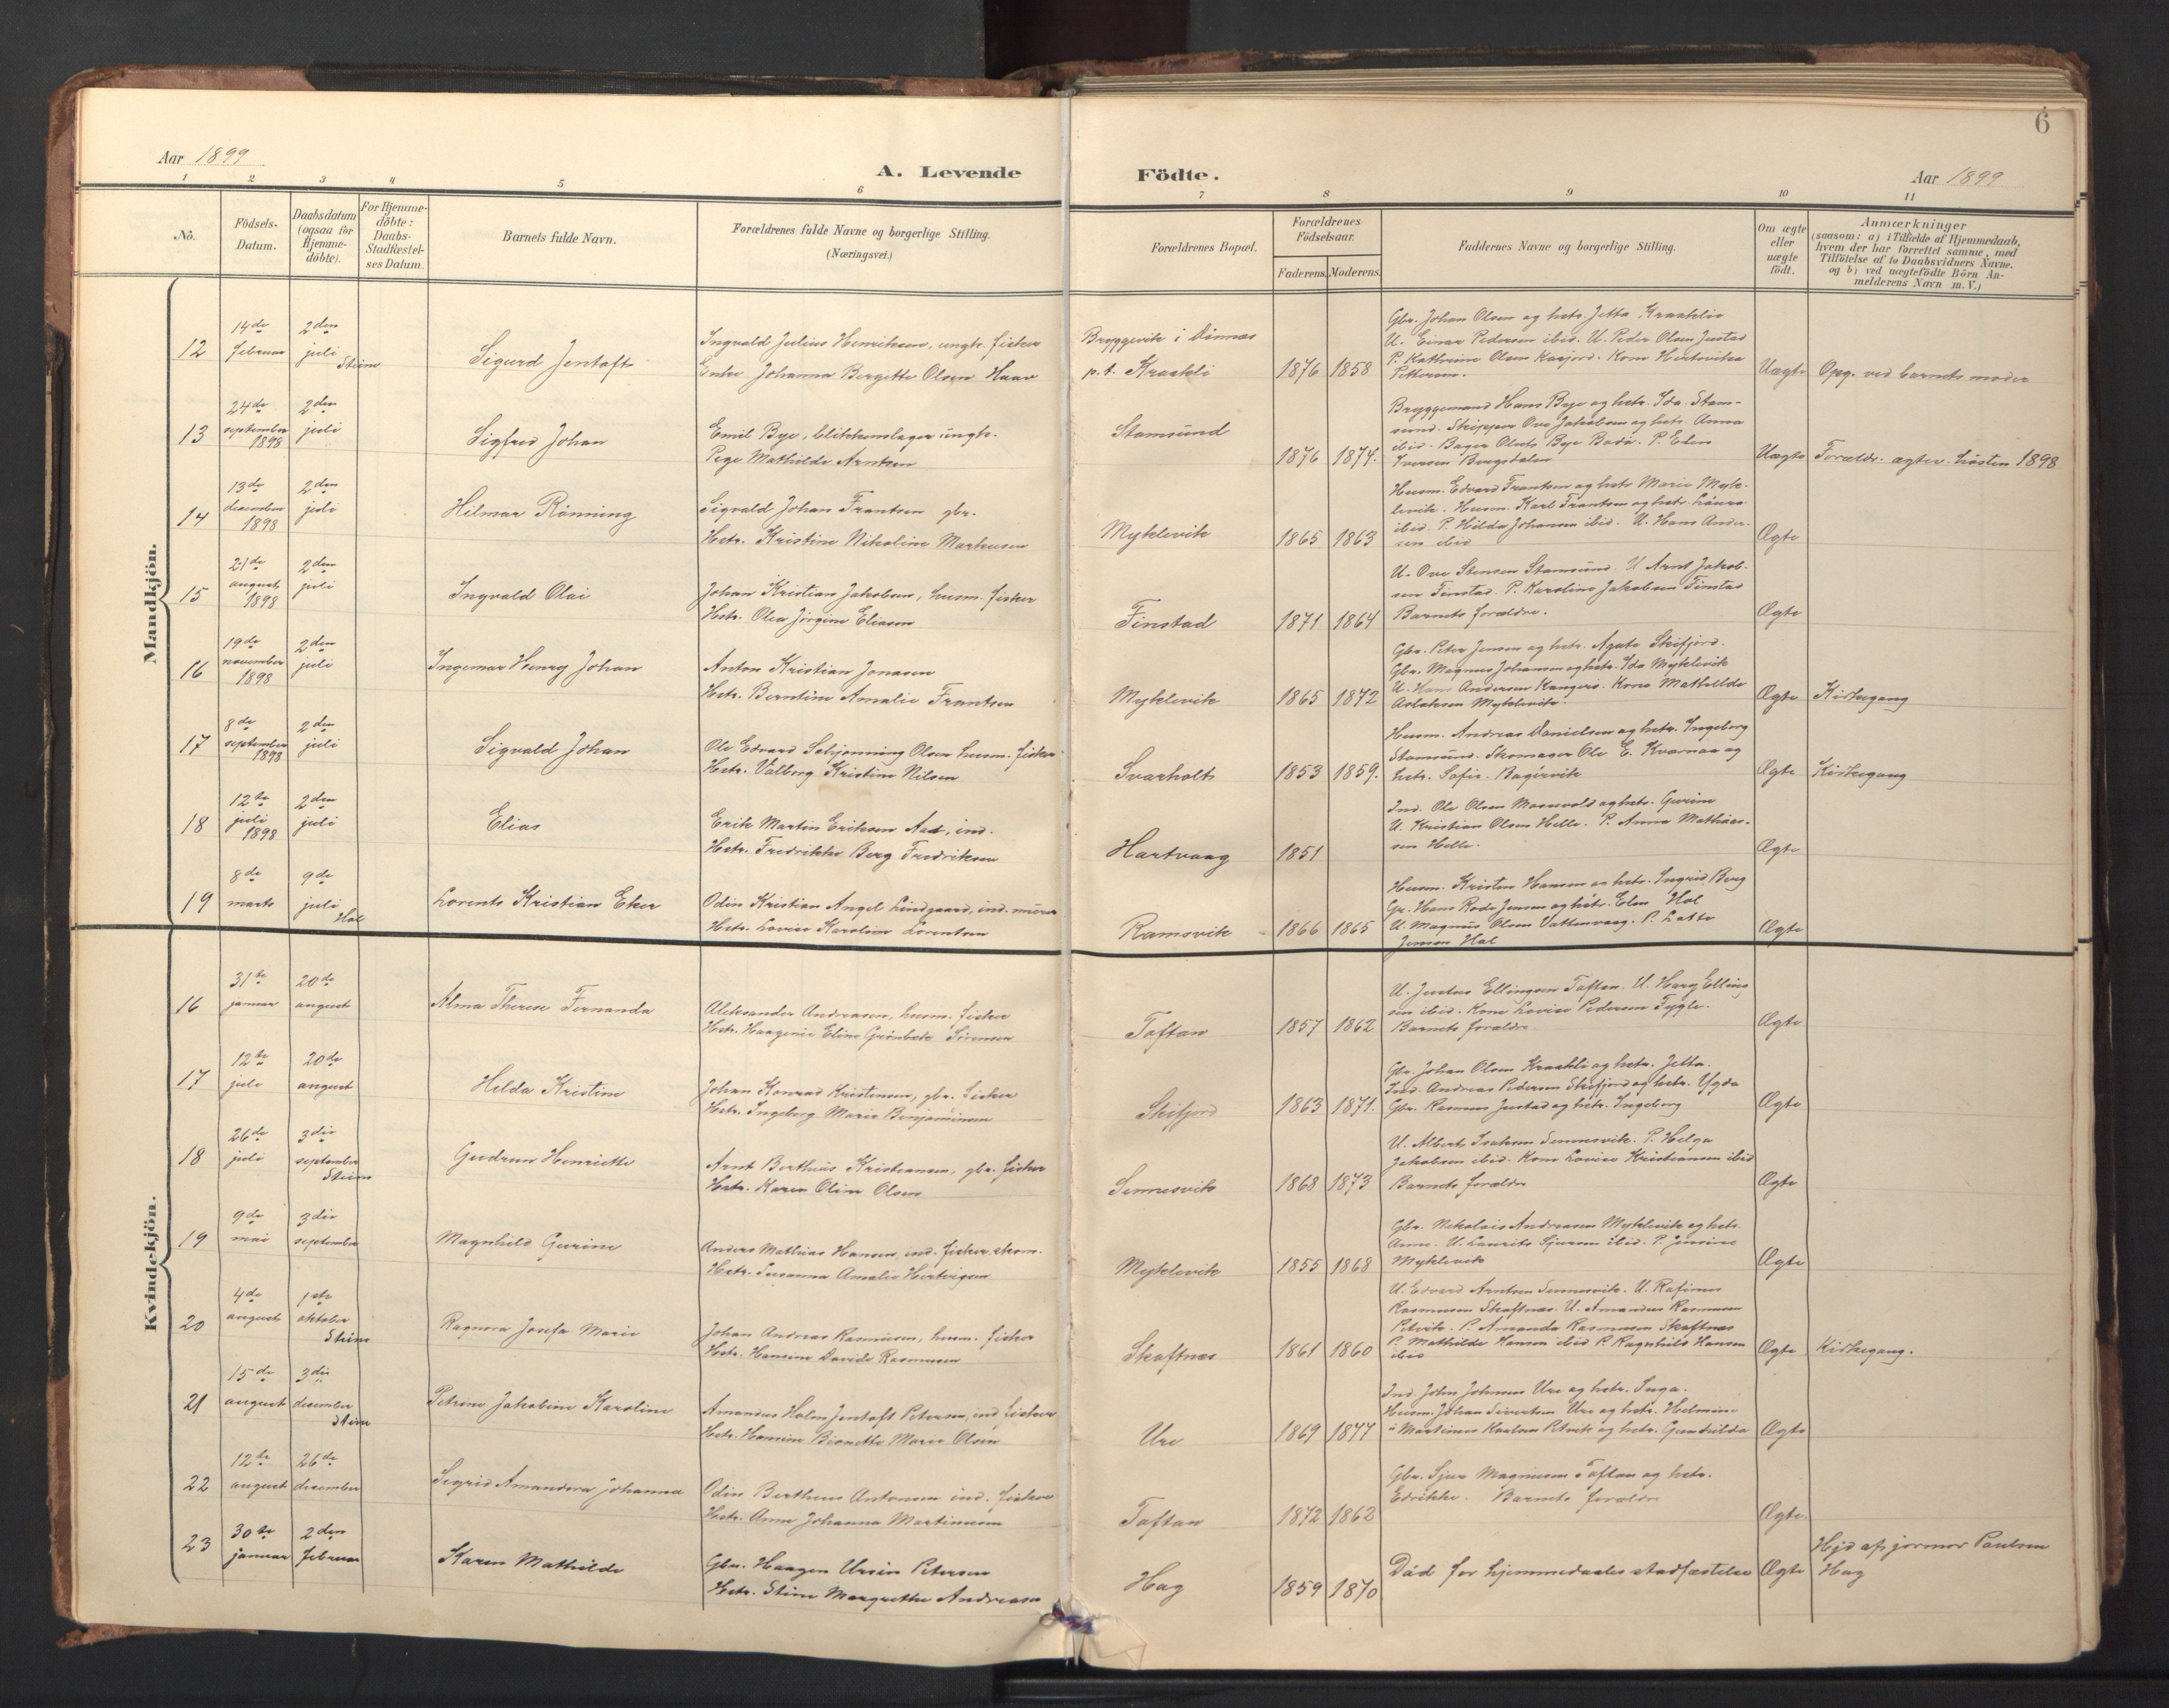 6
Aar 1899
A. Levende
Födte.
Aar 1899
1 2 3 4 5 6 7 8 9 10 11
No.
Födsels-
Datum.
Daabsdatum
(ogsaa for
Hjemme-
döbte).
For Hjemme-
döbte:
Daabs-
Stadfæstel-
ses Datum.
Barnets fulde Navn.
Forældrenes fulde Navne og borgerlige Stilling.
(Næringsvei.)
Forældrenes Bopæl.
Forældrenes
Födselsaar.
Faderens. Moderens.
Faddernes Navne og borgerlige Stilling.
Om ægte
eller
uægte
födt.
Anmærkninger
(saasom: a) i Tilfælde af Hjemmedaab,
hvem der har forrettet samme, med
Tilföielse af to Daabsvidners Navne,
og b) ved uægtefödte Börn An-
melderens Navn m. V.)
Mandkjön.
12
14de
februar
2den
juli
Stene
Sigurd Jentoft
Ingvald Julius Henriksen, ungk. fisker
Enke Johanna Bergitte Olsen Haav
p.t. Kraakli
1876 1858
Gbr. Johan Olsen og hstr. Jetta Kraakli
U. Einar Pedersen ibid. U. Peder Olsen Justad
P. Kathrine Olsen
Uægte
Opg. ved barnets moder
13
24de
september
1898
2den
juli
Sigfred Johan
Emil Bye, blikkenslager ungk.
Pige Mathilde Arntsen
Stamsund
1876 1874.
Bryggemand Hans Bye og hstr. Ida Stam-
sund. Skipper Ove Jakobsen og hstr. Anna
ibid. Bager Bye Bodö. P.
Iversen
Uægte
Foreldr. ægtev. hösten 1898
14
13de
december
1898
2den
juli
Hilmar Rönning
Sigvald Johan Frantsen gbr.
Hstr. Kristine Nikoline Markusen
Myklevik
1865 1863
Husm. Edvard Frantsen og hstr. Marie Myk-
levik. Husm. Karl Frantsen og hstr. Laura
ibid. P. Hilda Johansen ibid. U. Hans Ander-
sen ibid
Ægte
15
21de
august
1898
2den
juli
Ingvald Olai
Johan Kristian Jakobsen, husm. fisker
Hstr. Olea Jörgine Eliasen
Finstad
1871 1864
U. Ove Stensen Stamsund. U Arnt Jakob-
sen Finstad. P. Karoline Jakobsen Finstad
Barnets forældre.
Ægte
16
19de
november
1898
2den
juli
Ingemar Henry Johan
Anton Kristian Jonasen
Hstr. Berntine Amalie Frantsen
Myklevik
1865 1872
Gbr. Peter Jensen og hstr. Agate Skifjord.
Gbr. Magnus Johansen og hstr. Ida Myklevik
U. Hans Andersen Kangeris. Kone Mathilde
Aslaksen Myklevik.
Ægte
Kirkegang
17
8de
september
1898
2den
juli
Sigvald Johan
Ole Edvard Schjonning Olsen husm. fisker
Hstr. Valborg Kristine Nilsen
Svarholt
1853 1859.
Husm. Andreas Danielsen og hstr. Ingeborg
Stamsund. Skomager Ole E. Kvarnaa og
hstr. Sofie.
Ægte
Kirkegang
18
12te
juli
1898
2den
juli
Elias
Erik Martin Eriksen Aas, ind.
Hstr. Fredrikke Berg Fredriksen
Hartvaag
1851
Ind. Ole Olsen og hstr. Gurine
U. Kristian Olsen Helle. P. Anna Mathias-
sen Helle.
Ægte
19
8de
marts
9de
juli
Hol
Lorents Kristian Eker
Odin Kristian Angel Lindgaard, ind. murer
Hstr. Lovise Karoline Lorentsen
Ramsvik
1866 1865
Husm. Kristen Hansen og hstr. Ingrid Berg
Gr. Hans Rode Jensen og hstr. Elen Hol
U. Magnus Olsen Vattenvaag. P. Lotte
Jensen Hol
Ægte
Kvindekjön.
16
31te
januar
20de
august
Alma Therese Fernanda
Aleksander Andreasen, husm. fisker
Hstr. Haagenie Eline Grönbæk Sörensen
Toftan
1857 1862
U. Justus Ellingsen Toftan. U. Harg Elling-
sen ibid. Kone Lovise Pedersen Fygle.
Barnets forældre
Ægte
17
12te
juli
20de
august
Hilda Kristine
Johan Konrad Kristensen, gbr. fisker
Hstr. Ingeborg Marie Benjaminsen
Skifjord
1863 1871.
Gbr Johan Olsen Kraakli og hstr. Jetta.
Ind. Andreas Pedersen Skifjord og hstr.
Gbr. Rasmus Justad og hstr. Ingeborg
Ægte
18
26de
juli
3die
september
Stene
Gudrun Henriette
Arnt Bertheus Kristiansen, gbr. fisker
Hstr. Karen Oline Olsen
Sennesvik
1868 1873
U. Albert Isaksen Sennesvik. P. Helga
Jakobsen ibid. Kone Lovise Kristiansen ibid
Barnets forældre
Ægte
19
9de
mai
3die
september
Magnhild Gurine
Anders Mathias Hansen, ind. fisker, skom.
Hstr. Susanna Amalie Hertvigsen
Myklevik
1855 1868
Gbr. Nikolais Andreasen Myklevik og hstr.
Anne. U. Laurits Sjursen ibid. P. Jensine
Myklevik
Ægte
20
4de
august
1ste
oktober
Stene
Ragnora Josefa Marie
Johan Andreas Rasmusen, husm. fisker
Hstr. Hansine Davide Rasmusen
Skaftnes
1861 1860
U. Edvard Arntsen Sennesvik. U. Rafinus
Rasmusen Skaftnæs. U. Amandus Rasmusen
Petvik. P. Amanda Rasmusen Skaftnæs
P. Mathilde Hansen ibid P. Ragnhild Hansen
ibid
Ægte
Kirkegang.
21
15de
august
3die
december
Stene
Petrine Jakobine Karoline
Amandus Holm Jentoft Petersen, ind fisker
Hstr. Hansine Marie Olsen
Ure
1869 1877
Ind. John Johnsen Ure og hstr. Inga.
Husm. Johan Sivertsen Ure og hstr. Helmine
" Martinus Karlsen Petvik og hstr. Gunhilda
Ægte
22
12te
august
26de
december
Sigrid Amandora Johanna
Odin Bertheus Antonsen ind. fisker
Hstr. Anne Johanna Martinusen
Toftan
1872 1862
Gbr. Sjur Magnusen Toftan og hstr.
Edrikke. Barnets forældre
Ægte.
23
30te
januar
2den
februar
Karen Mathilde
Gbr. Haagen Ursin Petersen
Hstr. Stine Margrethe Andreasen
Hag
1859 1870
Död for hjemmedaabs stadfæstelse
Ægte
Hjd af jormor Paulsen
Hag